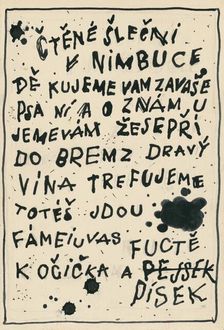 ČTĚNÉ SLEČNI
V NIMBUCE
DĚ KUJEME VAM ZAVAŠE
PSA NÍ A O ZNÁM, U
JEMEVAM ŽESEPŘI
DO BREMZ DRAVÝ
VÍNA TREFUJEME
TOTĚŠ JDOU
FÁMEIUVAS
FUCTĚ
KOČIČKA A PEJSEK
PISEK